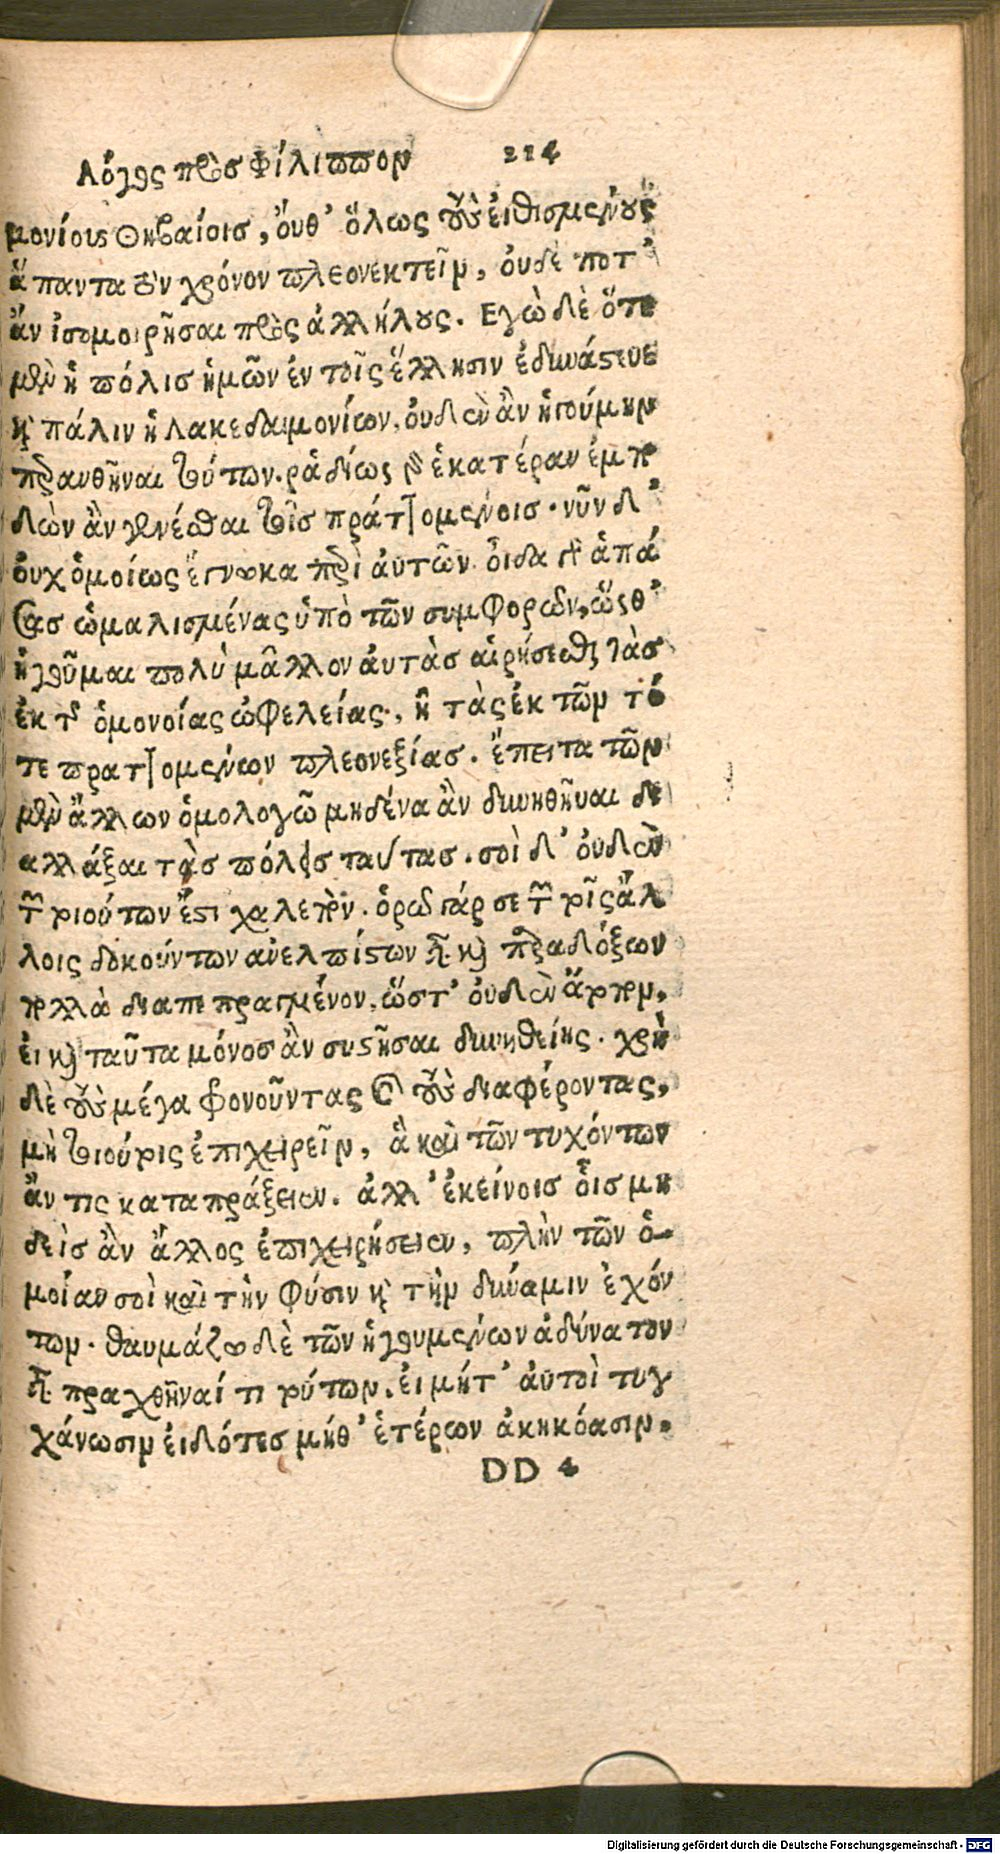 Λόγος πρὸς Φίλιππον 224
μονίους Θηβαίοις, ὄυθ' ὅλως τοὺς ἐιθισμένους
ἅπαντα τὸν χρόνον πλεονεκτεῖν, ὀυδέ ποτ'
ἂν ἰσομοιρῆσαι πρὸς ἀλλήλους. Εγὼ δὲ ὅτε
μὲν ἡ πόλις ἡμῶν ἐν τοῖς ἕλλησιν ἐδυνάστευε
καὶ πάλιν ἡ Λακεδαιμονίων, ὀυδὲν ἂν ἡγούμην
περανθῆναι τούτων. ῥαδίως γὰρ ἑκατέραν ἐμπο
δὼν ἂν γενέσθαι τοῖς πραττομένοις. νῦν δ'
ὀυχ ὁμοίως ἔγνωκα περὶ ἀυτῶν. ὀῖδα γὰρ ἁπά
σας ὡμαλισμένας ὑπὸ τῶν συμφορῶν, ὥσθ'
ἡγοῦμαι πολὺ μᾶλλον ἀυτὰς αἱρήσεσθαι τὰς
ἐκ τῆς ὁμονοίας ὠφελείας, ἢ τὰς ἐκ τῶν τό
τε πραττομένων πλεονεξίας. ἔπειτα τῶν
μὲν ἄλλων ὁμολογῶ μηδένα ἂν δυνηθῆναι δι
αλλάξαι τὰς πόλεις ταύτας. σοὶ δ' ὀυδὲν
τῶν τοιούτων ἐστὶ χαλεπόν. ὁρῶ γάρ σε τῶν τοῖς ἄλ
λοις δοκούντων ἀνελπίστων εἶναι καὶ παραδόξων
πολλὰ διαπεπραγμένον, ὥστ' ὀυδὲν ἄτοπον,
ἐι καὶ ταῦτα μόνος ἂν συστῆσαι δυνηθείης. χρὴ
δὲ τοὺς μέγα φρονοῦντας καὶ τοὺς διαφέροντας,
μὴ τοιούτοις ἐπιχειρεῖν, ἃ καὶ τῶν τυχόντων
ἄν τις καταπράξειεν. ἀλλ' ἐκείνοις ὁῖς μη
δεὶς ἂν ἄλλος ἐπιχειρήσειεν, πλὴν τῶν ὁ-
μοίαν σοὶ καὶ τὴν φύσιν καὶ τὴν δύναμιν ἐχόν
των. θαυμάζω δὲ τῶν ἡγουμένων ἀδύνατον
εἶναι πραχθῆναί τι τούτων, ἐι μήτ' ἀυτοὶ τυγ
χάνωσιν ἐιδότες μήθ' ἑτέρων ἀκηκόασιν.
DD 4
Digitalisierung gefördert durch die Deutsche Forschungsgemeinschaft - DFG